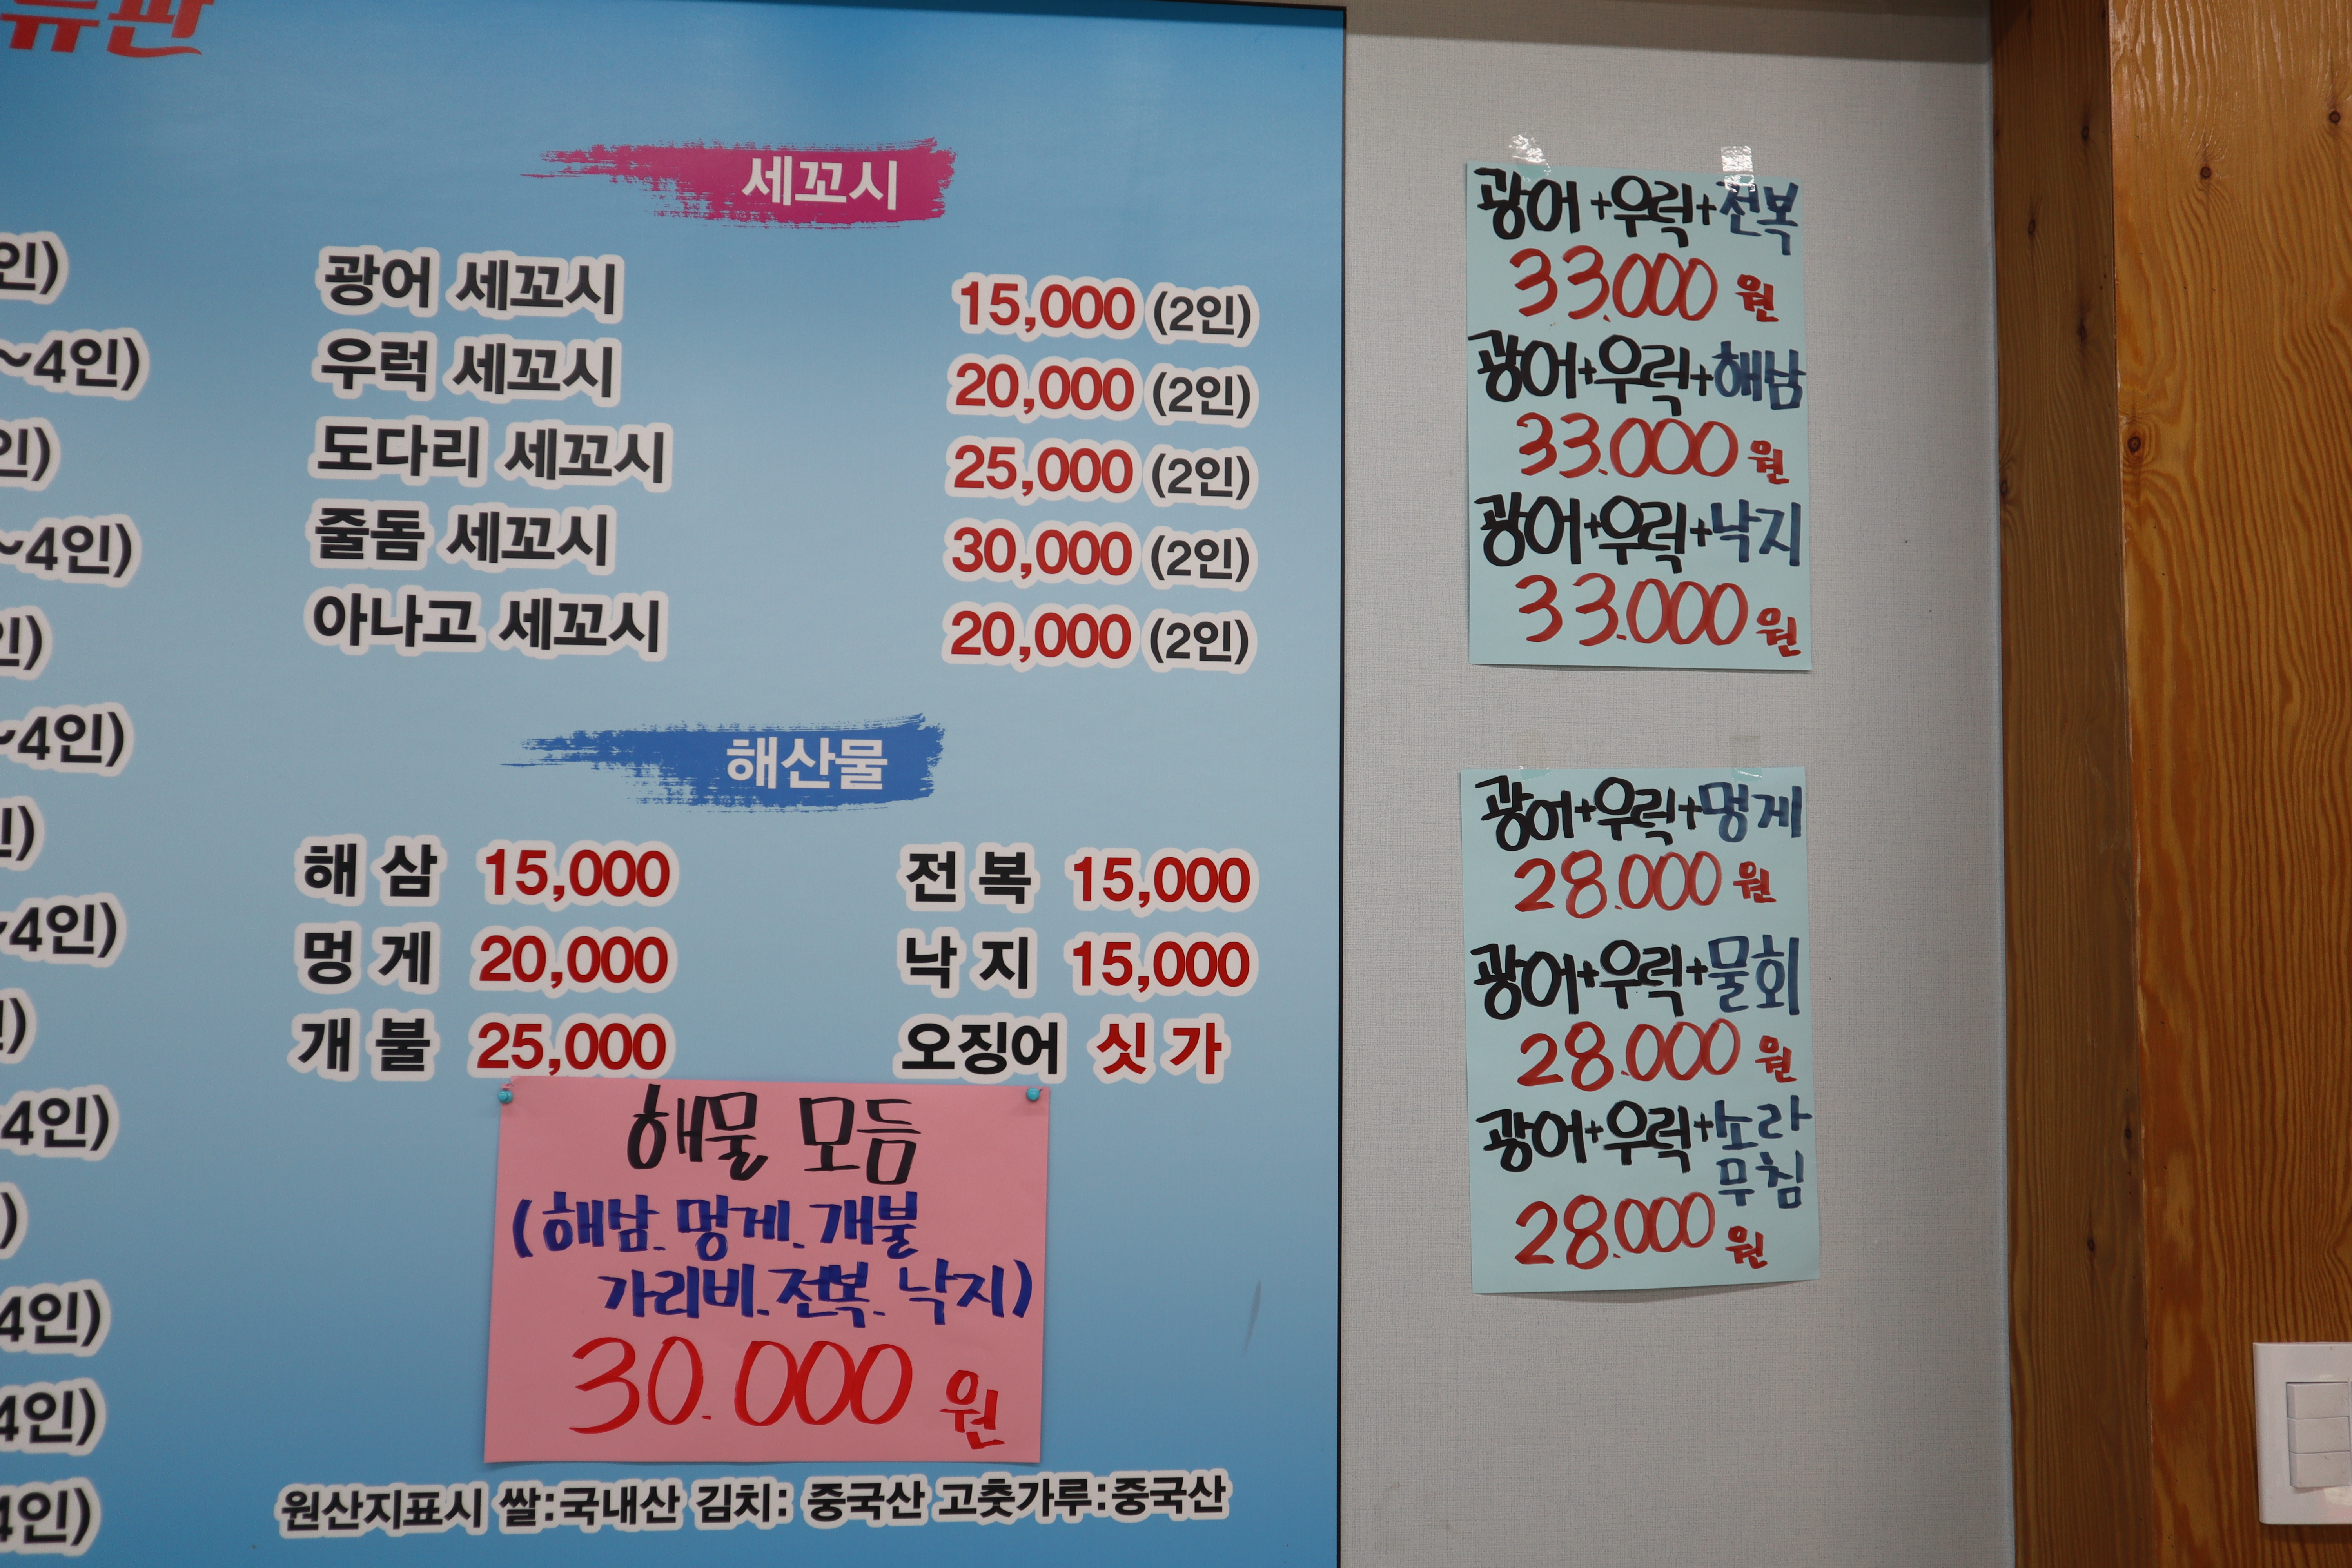 류판
인)
~4인)
인)
~4인)
인)
~4인)
인)
~4인)
인)
4인)
)
4인)
4인)
4인)
세꼬시
광어 세꼬시 15,000 (2인)
우럭 세꼬시 20,000 (2인)
도다리 세꼬시 25,000 (2인)
줄돔 세꼬시 30,000 (2인)
아나고 세꼬시 20,000 (2인)
해산물
해 삼 15,000 전 복 15,000
멍 게 20,000 낙 지 15,000
개 불 25,000 오징어 싯 가
해물 모듬
(해삼. 멍게. 개불
가리비. 전복. 낙지)
30.000 원
원산지표시 쌀:국내산 김치: 중국산 고춧가루:중국산
광어+우럭+전복
33.000 원
광어+우럭+해삼
33.000 원
광어+우럭+낙지
33.000 원
광어+우럭+멍게
28.000 원
광어+우럭+물회
28.000 원
광어+우럭+소라
무침
28.000 원